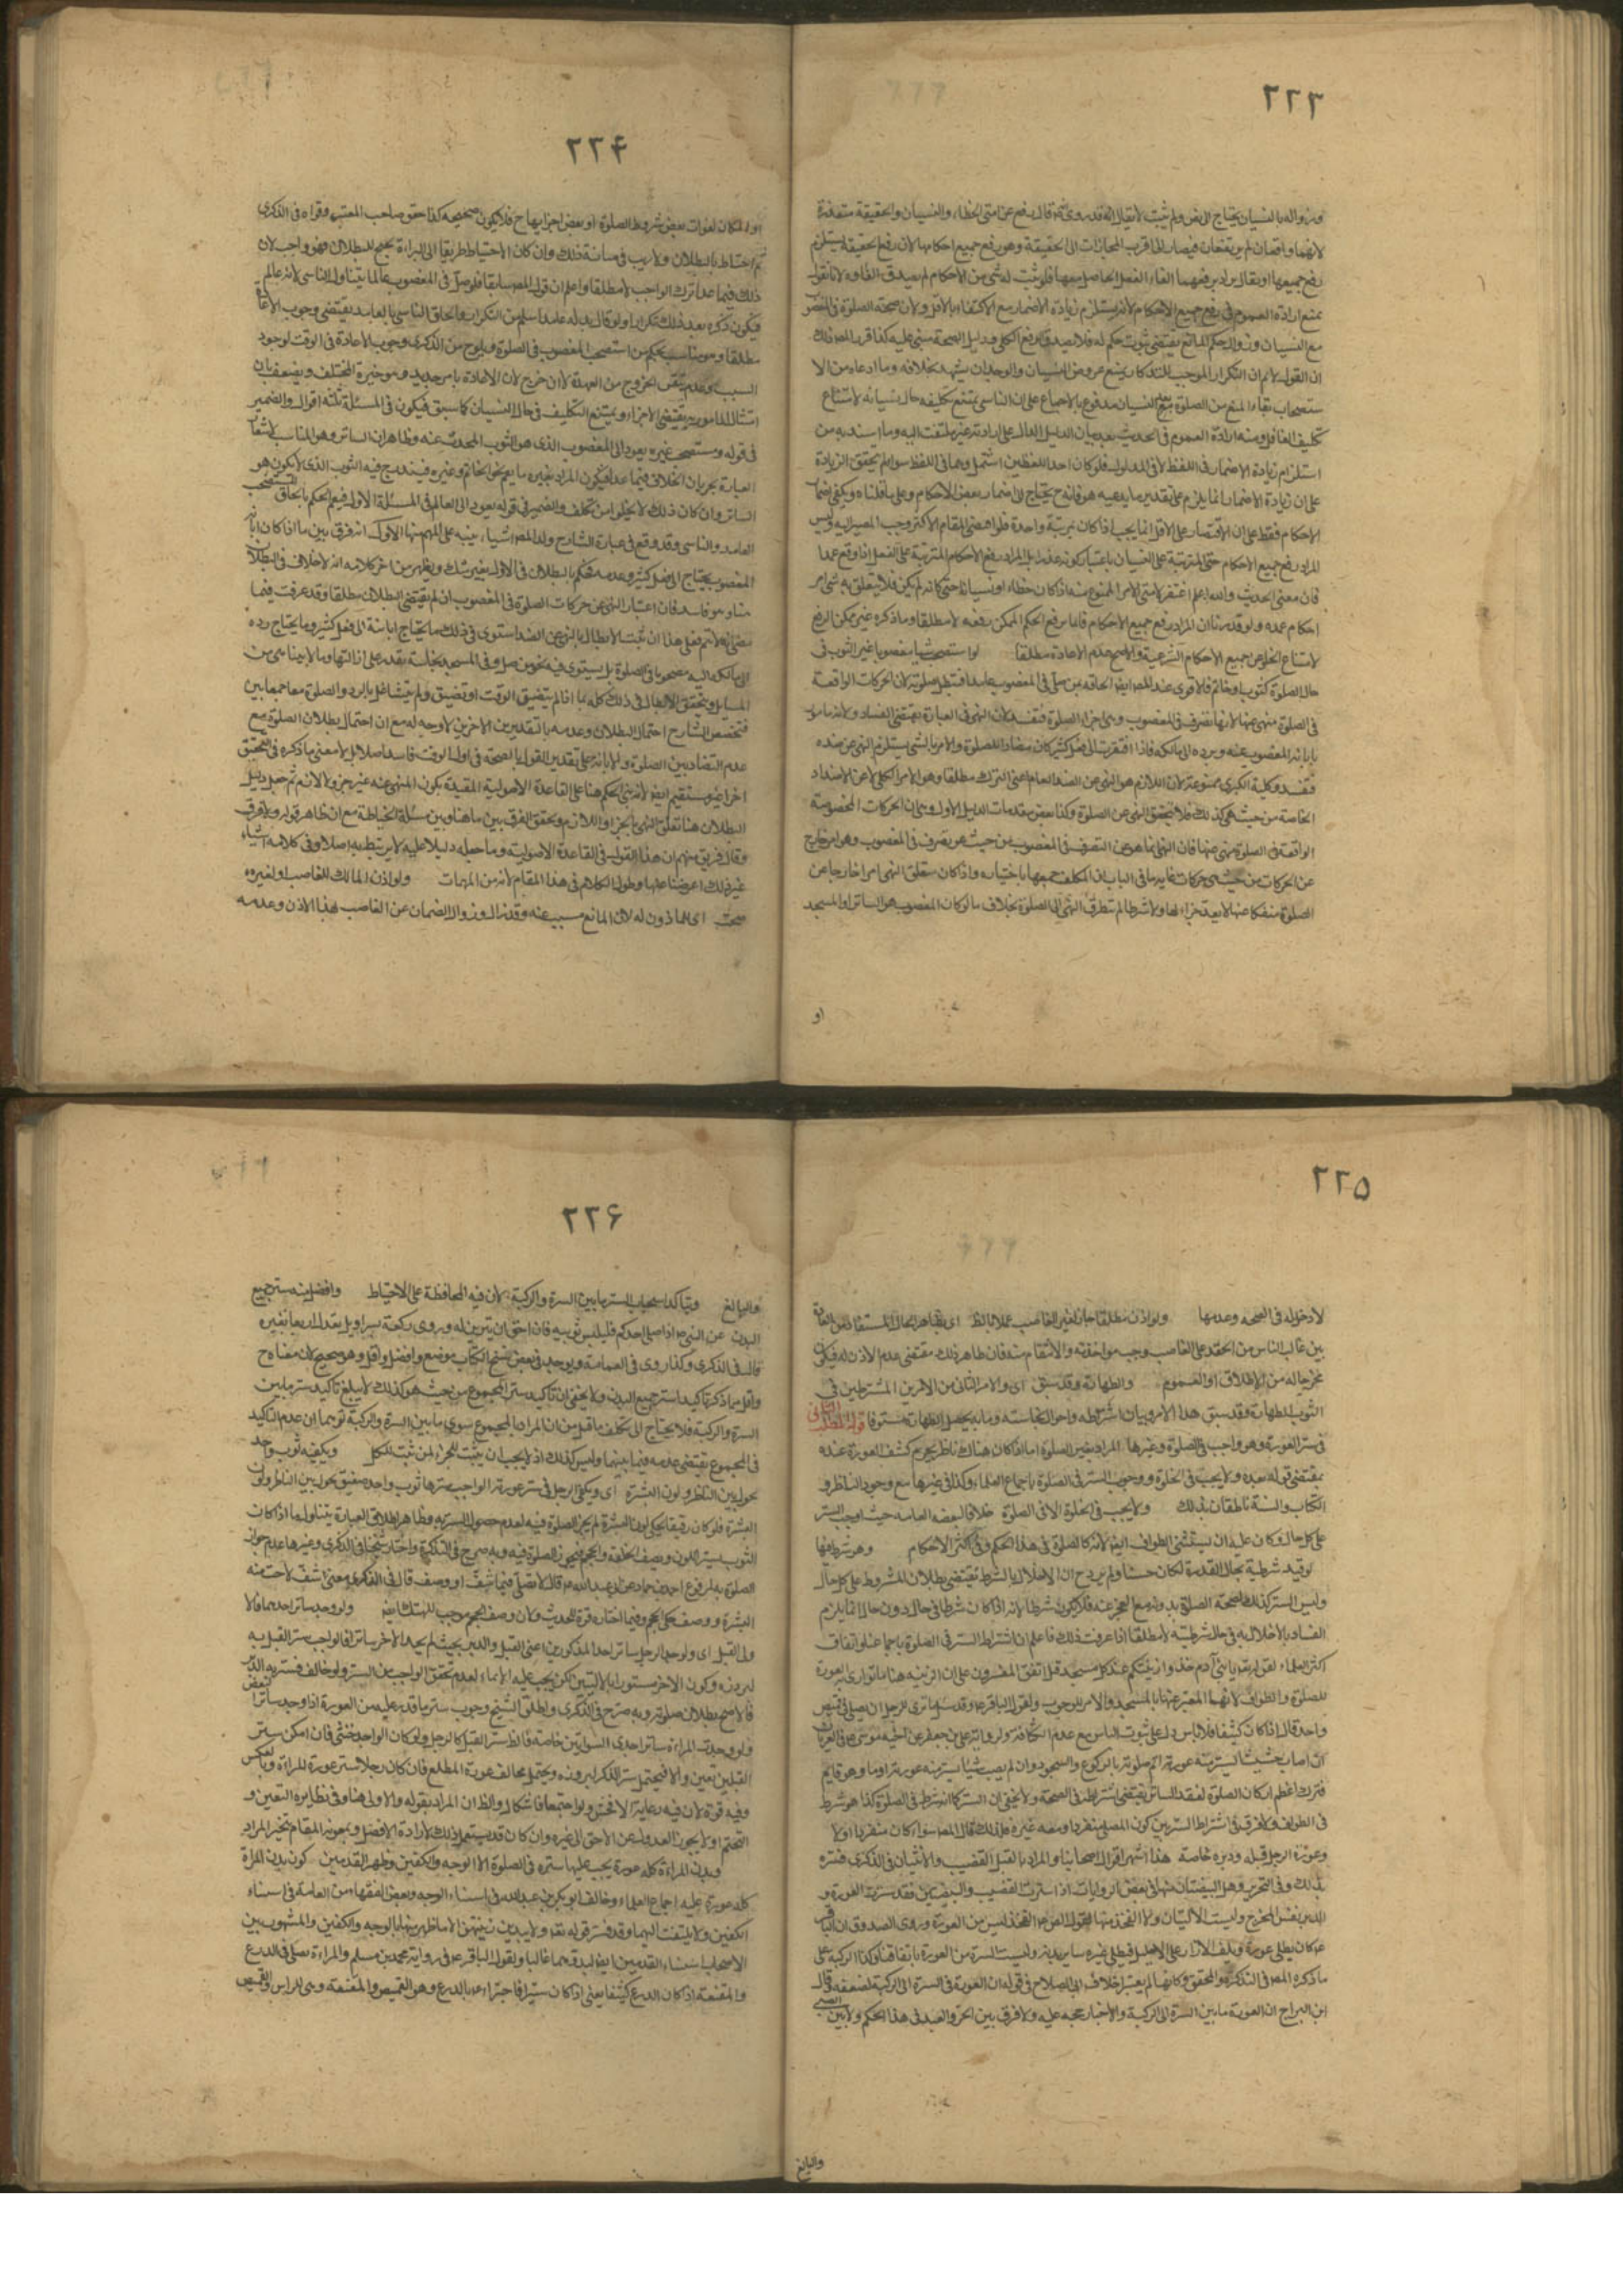 ٢٢٣
وزواله بالنسيان يحتاج الى نص ولم يثبت لا يقال انه قد روى انه قال رفع عن امتى الخطاء والنسيان والحقيقة متعذرة
لانهما واقعان لم يرتفعان فيصار الى اقرب المجازات الى الحقيقة وهو رفع جميع احكامها لان رفع الحقيقة يستلزم
رفع جميعها او يقال يراد برفعهما الغاء الفعل الحاصل معها فلو ثبت له شئ من الاحكام لم يصدق الغاوه لانا نقول
نمنع ارادة العموم فى رفع جميع الاحكام لانه يستلزم زيادة الاضمار مع الاكتفاء بالاقل ولان صحة الصلوة فى المغصوب
مع النسيان وزوال حكم المانع يقتضى ثبوت حكم له فلا يصدق الرفع الكلى ودليل الصحة مبنى عليه كذا قرر المص ذلك
ان القول لا نم ان التكرار الموجب للتذكار يمنع عروض النسيان والوجدان يشهد بخلافه وما ادعاه من الا
ستصحاب بقاء المنع من الصلوة مع النسيان مدفوع بالاجماع على ان الناسى يمتنع تكليفه حال نسيانه لامتناع
تكليف الغافل ومنه ارادة العموم فى الحديث بعد بيان الدليل الدال على ارادته غير ملتفت اليه وما اسند به من
استلزام زيادة الاضمار فى اللفظ لا فى المدلول فلو كان احد اللفظين اشتمل وهما فى اللفظ سواء لم يتحقق الزيادة
على ان زيادة الاضمار انما يلزم على تقدير ما يدعيه هو فانه ح يحتاج الى اضمار بعض الاحكام وعلى ما قلناه ويكفى اضمار
الاحكام فقط على ان الاقتصار على الاقل انما يجب اذا كان بمرتبة واحدة فلو اقتضى المقام الاكثر وجب المصير اليه وليس
المراد رفع جميع الاحكام حتى المترتبة على النسيان باعتبار كونه عذرا بل المراد رفع الاحكام المترتبة على الفعل اذا وقع عمدا
فان معنى الحديث والله اعلم اغتفر لامتى الامر الممنوع منه اذا كان خطاء او نسيانا حتى كانه لم يكن فلا يتعلق به شئ من
احكام عمده ولو قدرنا ان المراد رفع جميع الاحكام فانما يرفع الحكم الممكن رفعه لا مطلقا وما ذكره غير ممكن الرفع
لامتناع الخلو عن جميع الاحكام الشرعية والاصح عدم الاعادة مطلقا لو استصحب شيئا مغصوبا غير الثوب فى
حال الصلوة كثوب او خاتم فالاقوى عند المص ايضا الحاقه بمن صلى فى المغصوب عامدا فتبطل صلوته لان الحركات الواقعة
فى الصلوة منهى عنها لانها تصرف فى المغصوب وهى اجزاء الصلوة فتفسد لان النهى فى العبادة يقتضى الفساد ولانه مامور
بابانة المغصوب عنه ورده الى مالكه فاذا افتقرت الى فعل كثير كان مضادا للصلوة والامر بالشئ يستلزم النهى عن ضده
فتفسد وكلية الكبرى ممنوعة لان اللازم هو النهى عن الضد العام اعنى الترك مطلقا وهو الامر الكلى لا عن الاضداد
الخاصة من حيث هى كذلك فلا يتحقق النهى عن الصلوة وكذا بعض مقدمات الدليل الاول وهى ان الحركات المخصوصة
الواقعة فى الصلوة منهى عنها فان النهى انما هو عن التصرف فى المغصوب من حيث هو تصرف فى المغصوب وهو امر خارج
عن الحركات من حيث هى حركات غاية ما فى الباب ان المكلف جمعها باختياره واذا كان متعلق النهى امرا خارجا عن
الصلوة منفكا عنها لا يعد جزءا لها ولا شرطا لم يتطرق النهى الى الصلوة بخلاف ما لو كان المغصوب هو الساتر او المسجد
او
٢٢۴
او المكان لفوات بعض شروط الصلوة او بعض اجزائها ح فلا يكون صحيحه كذا حقق صاحب المعتبر وقواه فى الذكرى
ثم احتاط بالبطلان ولا ريب فى متانة ذلك وان كان الاحتياط طريقا الى البراءة
ذلك فيما عدا ترك الواجب لا مطلقا واعلم ان قول المص سابقا فلو صلى فى المغصوب عالما يتناول الناسى لانه عالم
فيكون ذكره بعد ذلك تكرارا ولو قال بدله عامدا سلم من التكرار والحاق الناسى بالعامد يقتضى وجوب الاعادة
مطلقا وهو مناسب لحكم من استصحب المغصوب فى الصلوة ويلوح من الذكرى وجوب الاعادة فى الوقت لوجود
السبب وعدم تيقن الخروج من العهدة لا ان خرج لان الاعادة بامر جديد وهو خيرة المختلف ويضعف بان
امتثال المامور به يقتضى الاجزاء ويمتنع التكليف فى حال النسيان كما سبق فيكون فى المسئلة ثلثة اقوال والضمير
فى قوله ومستصحب غيره يعود الى المغصوب الذى هو الثوب المحدث عنه وظاهر ان الساتر وهو المناسب
العبارة بجريان الخلاف فيما عداه فيكون المراد بغيره ما يعم نحو الخاتم وغيره فيندرج فيه الثوب الذى لا يكون هو
الساتر وان كان ذلك لا يخلو من تكلف والضمير فى قوله يعود الى العالم فى المسئلة الاولى فيعم الحكم بالحاق المستصحب
العامد والناسى وقد وقع فى عبارة الشارح ولد المص اشياء ينبه على المهم منها الاول انه فرق بين ما اذا كان ابانة
المغصوب يحتاج الى فعل كثير وعدمه فحكم بالبطلان فى الاول بغير شك ويظهر من اخر كلامه انه لا خلاف فى البطلان
هنا وهو فاسد فان اعتبار النهى عن حركات الصلوة فى المغصوب ان لم يقتضى البطلان مطلقا وقد عرفت فيما
مضى انه لا تم فعلى هذا ان ثبت الابطال بالنهى عن الضد استوى فى ذلك ما يحتاج ابانته الى فعل كثير وما يحتاج رده
الى مالكه اليه مصحوبا فى الصلوة بل يستوى فيه نحو من صلى وفى المسجد نجاسة يقدر على ازالتها
المسايل ويتحقق الابطال فى ذلك كله ما اذا لم يتضيق الوقت او تضيق ولم يتشاغل بالرد والصلوة معا جمعا بين
فتخصيص الشارح احتمال البطلان وعدمه بالتقديرين الاخرين لا وجه له مع ان احتمال بطلان الصلوة مع
عدم التضاد بين الصلوة والابانة على تقدير القول بالصحة فى اول الوقت فاسد اصلا بل لا معنى ما ذكره فى التحقيق
اخرا غير مستقيم ايضا لانه بنى الحكم هنا على القاعدة الاصولية المقيدة بكون المنهى عنه غير جزء ولا لازم ثم جعل دليل
البطلان هنا تعلق النهى بالجزء او اللازم وتحقق الفرق بين ما هنا وبين مسئلة الخياطة مع ان ظاهر قوله ولا فرق
وقال فريق منهم ان هذا القول فى القاعدة الاصولية وما جعله دليلا عليه لا يرتبط به اصلا وفى كلامه اشياء
غير ذلك اعرضنا عنها وطول الكلام فى هذا المقام لانه من المهمات ولو اذن المالك للغاصب او لغيره
صحت اى للماذون له لان المانع مسبب عنه وقد زال وزوال الضمان عن الغاصب بهذا الاذن وعدمه
٢٢۵
لا دخل له فى الصحة وعدمها ولو اذن مطلقا جاز لغير الغاصب عملا بالظ اى بظاهر الحال المستفاد من العادة
بين غالب الناس من الحقد على الغاصب وحب مواخذته والانتقام منه فان ظاهر ذلك مقتضى عدم الاذن له فيكون
مخرجا له من الاطلاق او العموم والطهارة وقد سبق اى والامر الثانى من الامرين المشترطين فى
الثوب الطهارة وقد سبق هذا الامر وبيان اشتراطه واحوال نجاسته وما به يحصل الطهارة مستوفا قوله المطلب الثانى
فى ستر العورة وهو واجب فى الصلوة وغيرها المراد بغير الصلوة اما اذا كان هناك ناظر يحرم كشف العورة عنده
بمقتضى قوله بعده ولا يجب فى الخلوة ووجوب الستر فى الصلوة باجماع العلماء وكذا فى غيرها مع وجود الناظر و
الكتاب والسنة ناطقان بذلك ولا يجب فى الخلوة الا فى الصلوة خلافا لبعض العامة حيث اوجب الستر
على كل حال وكان عليه ان يستثنى الطواف ايضا لانه كالصلوة فى هذا الحكم وفى اكثر الاحكام وهو شرط فيها
لو قيد شرطية بحال القدرة لكان حسنا ولم يرد ح ان الاخلال بالشرط يقتضى بطلان المشروط على كل حال
وليس الستر كذلك لصحة الصلوة بدونه مع العجز عنه فلا يكون شرطا بانه اذا كان شرطا فى حال دون حال انما يلزم
الفساد بالاخلال به فى حال شرطيته لا مطلقا اذا عرفت ذلك فاعلم ان اشتراط الستر فى الصلوة باجماعنا واتفاق
اكثر العلماء لقوله تعالى يا بنى آدم خذوا زينتكم عند كل مسجد قيل اتفق المفسرون على ان الزينه هنا ما توارى به العورة
للصلوة والطواف لانهما المعبر عنها بالمسجد والامر للوجوب ولقول الباقر ع وقد سئل ما ترى للرجل ان يصلى فى قميص
واحد قال اذا كان كثيفا فلا باس دل على ثبوت الباس مع عدم الكثافة ولرواية على بن جعفر عن اخيه موسى ع فى العريان
ان اصاب حشيشا يستر منه عورته اتم صلوته بالركوع والسجود وان لم يصب شيئا يستر منه عورته اوما وهو قايم
فترك اعظم اركان الصلوة لفقد الساتر يقتضى اشتراطه فى الصحة ولا يخفى ان الستر كما انه شرط فى الصلوة كذا هو شرط
فى الطواف ولا فرق فى اشتراط الستر بين كون المصلى منفردا ومعه غيره فلذلك قال المص سواء كان منفردا او لا
وعورة الرجل قبله ودبره خاصة هذا اشهر اقوال اصحابنا والمراد بالقبل القضيب والانثيان فى الذكرى فسره
بذلك وفى التحرير وهل البيضتان منها فى بعض الروايات اذا سترت القضيب والبيضتين فقد سترت العورة و
الدبر نفس المخرج وليست الاليتان ولا الفخذ منها لقول الص ع الفخذ ليس من العورة وروى الصدوق ان الباقر
ع كان يطلى عورته ويلف الازار على الاحليل فيطلى غيره ساير بدنه وليست السرة من العورة باتفاقنا وكذا الركبه على
ما ذكره المص فى التذكرة والمحقق وكانهما لم يعتبرا خلاف ابى الصلاح فى قوله ان العورة من السرة الى الركبة لضعفه قال
ابن البراج ان العورة ما بين السرة الى الركبة والاخبار حجه عليه ولا فرق بين الحر والعبد فى هذا الحكم ولا بين الصبى
والبالغ
٢٢۶
والبالغ ويتاكد استحباب الستر ما بين السرة والركبة لان فيه المحافظة على الاحتياط وافضل منه ستر جميع
البدن عن النبى ص اذا صلى احدكم فليلبس ثوبيه فان الله احق ان يتزين له وروى ركعة بسراويل تعدل اربعا بغيره
قال فى الذكرى وكذا روى فى العمامة ويوجد فى بعض نسخ الكتاب موضع وافضل واقل وهو صحيح لان معناه ح
واقل مما ذكر تاكيدا ستر جميع البدن ولا يخفى ان تاكيد ستر المجموع من حيث هو كذلك لا يبلغ تاكيد ستر ما بين
السرة والركبة فلا يحتاج الى تكلف ما قيل من ان المراد بالمجموع سوى ما بين السرة والركبة توهما ان عدم التاكيد
فى المجموع يقتضى عدمه فيما بينهما وليس كذلك اذ لا يجب ان يثبت للجزء لمن ثبت للكل ويكفيه ثوب واحد
يحول بين الناظر ولون البشرة اى ويكفى الرجل فى ستر عورته الواجب سترها ثوب واحد صفيق يحول بين الناظر ولون
البشرة فلو كان رقيقا يحكى لون البشرة لم يجز الصلوة فيه لعدم حصول الستر به وظاهر اطلاق العبارة يتناول ما اذا كان
الثوب يستر اللون ويصف الخلقة والحجم فيجوز الصلوة فيه وبه صرح فى التذكرة واختار شيخنا فى الذكرى وغيرها عدم جواز
الصلوة به لمرفوع احمد بن حماد عن ابى عبد الله ع قال لا تصل فيما شف او وصف قال فى الذكرى معنى شف لاحت منه
البشرة ووصف حكى الحجم وفيما اختاره قوة للحديث ولان وصف الحجم موجب للهتك ايضا ولو وجد ساتر احدهما فالا
ولى القبل اى ولو وجد الرجل ساتر احد المذكورين اعنى القبل والدبر بحيث لم يجد الاخر ساترا فالواجب ستر القبل به
لبروزه وكون الاخر مستورا بالاليتين لكن يجب عليه الايماء لعدم تحقق الواجب من الستر ولو خالف فستر به الدبر
فالاصح بطلان صلوته وبه صرح فى الذكرى واطلق الشيخ وجوب ستر ما قدر عليه من العورة اذا وجد ساترا لبعض
ولو وجدت المراءة ساتر احدى السواتين خاصة فالظ ستر القبل كالرجل ولو كان الواجد خنثى فان امكن ستر
القبلين تعين والا فيحتمل ستر الذكر لبروزه ويحتمل مخالف عورة المطلع فان كان رجلا ستر عورة المراءة وبالعكس
وفيه قوة لان فيه رعاية الافحش ولو اجتمعا فاشكال والظ ان المراد بقوله والاولى هنا وفى نظايره التعين و
التحتم اولا يجوز العدول عن الاحق الى غيره وان كان قد يستعمل ذلك لارادة الافضل وبمعونة المقام يتخير المراد
وبدن المراءة كله عورة يجب عليها ستره فى الصلوة الا الوجه والكفين وظهر القدمين كون بدن المراة
كله عورة عليه اجماع العلماء وخالف ابو بكر بن عبد الله فى استثناء الوجه وبعض الفقهاء من العامة فى استثناء
الكفين ولا يلتفت اليهما وقد فسر قوله تعالى ولا يبدين زينتهن الا ما ظهر منها بالوجه والكفين والمشهور بين
الاصحاب استثناء القدمين ايضا لبدوهما غالبا ولقول الباقر ع فى رواية محمد بن مسلم والمراءة تصلى فى الدرع
والمقنعة اذا كان الدرع كثيفا يعنى اذا كان ستيرا فاجتزاء ع بالدرع وهو القميص والمقنعة وهى للراس والقميص